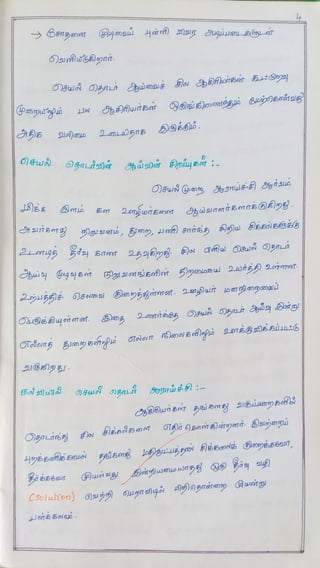 4
→ சோதனை முடிவைப் புள்ளி விவர அடிப்படைகளுடன்
வெளியிடுகிறார்.
செயல் தொடர் ஆய்வைச் சில ஆசிரியர்கள் கூட்டுறவு
முறையிலும் பல ஆசிரியர்கள் ஒருங்கிணைந்தும் மேற்கொள்வது
அதிக வலிமை உடையதாக இருக்கும்.
செயல் தொடர்வின் ஆய்வின் சிறப்புகள் :-
செயல்முறை ஆராய்ச்சி ஆர்வம்
மிக்க இளம் கள ஊழியர்களை ஆய்வாளர்களாக்குகிறது.
அவர்களது நிறுவனம், துறை, பணி சார்ந்த சிறிய சிக்கல்களுக்கு
உடனடித் தீர்வு காண உதவுகிறது. சில எளிய செயல் தொடர்
ஆய்வு முடிவுகள் நிறுவனங்களின் திறமையை உயர்த்தி உள்ளன.
உற்பத்திச் செலவை குறைத்துள்ளன. ஊழியர் மனநிறைவைப்
பெருக்கியுள்ளன. இதை உணர்ந்தே செயல் தொடர் ஆய்வு இன்று
எல்லாத் துறைகளிலும் எல்லா நிலைகளிலும் ஊக்குவிக்கப்பட்டு
வருகிறது.
கல்வியில் செயல் தொடர் ஆராய்ச்சி :-
ஆசிரியர்கள் தங்களது வகுப்பறைகளில்
தொடர்ந்து சில சிக்கல்களை எதிர்கொள்கின்றனர். இவற்றைப்
புறக்கணிக்காமல் தங்களது சிக்கலைக் குறைக்கவோ,
தீர்க்கவோ முயல்வது இன்றியமையாதது ஒரு தீர்வு வழி
(Solution) வெற்றி பெறாவிடில் பிறிதொன்றை முயன்று
பார்க்கலாம்.